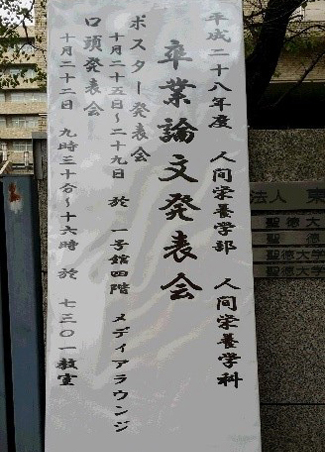 平成二十八年度 人间栄養学部 人间栄養学科
卒業論文発表会
ポスター発表会
十月二十五日~二十九日 於 一号館四階 メディアラウンジ
口頭発表会
十月二十二日 九時三十分~十六時 於 七三〇一教室
法人 東
聖徳大
聖 徳
聖徳大学
聖徳大学